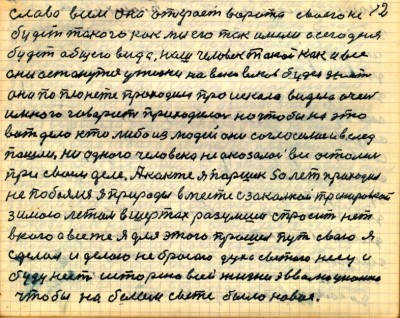 12
слава всем она открает ворота своего не
будет такого как ты его так имели а сегодня
будет общего вида, наш человек такой как и все
они останутся у жизни на века веков будем знать
они по планете проходили
много говорить приходилось но чтобы на это
вот дело кто либо из людей они согласились и след
пошли, ни одного человека не оказалось все остались
при своем деле, А как же я Паршек 50 лет проходил
не побоялся я природы вместе с закалкой тренировкой
зимой летом в шортах разумно спросить нет
в кого а все же я для этого прошел путь свой я
сделал и делаю не бросаю духа святого несу и
буду нести историю всей жизни я эволюционно
чтобы на белом свете было новое.